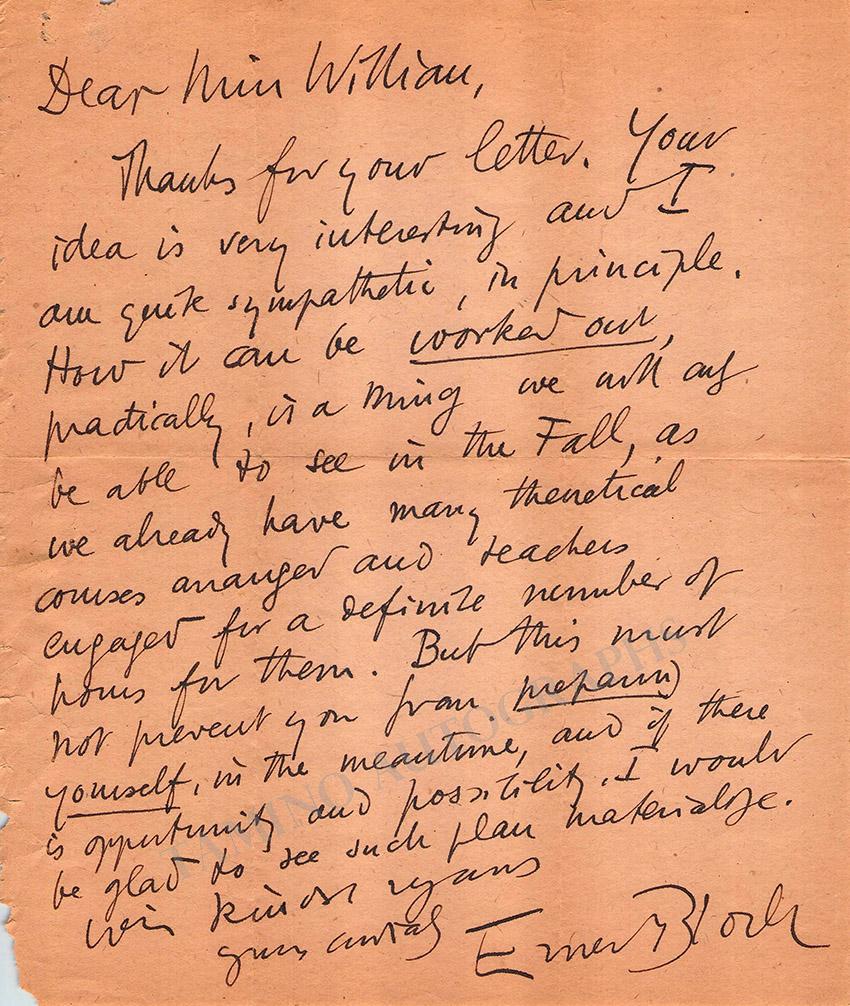 Dear Miss William,
Thanks for your letter. Your
idea is very interesting and I
am quite sympathetic, in principle.
How it can be worked out,
practically, is a thing we will only
be able to see in the Fall, as
we already have many theoretical
courses arranged and teachers
engaged for a definite number of
hours for them. But this must
not prevent you from preparing
yourself, in the meantime, and if there
is opportunity and possibility, I would
be glad to see such plan materialize.
With kindest regards
yours cordially Ernest Bloch
TAMINO AUTOGRAPHS